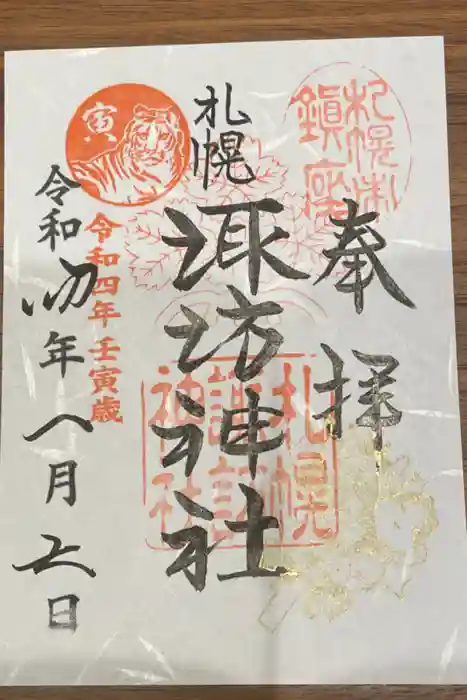 奉拝
札幌鎮座
札幌
諏訪神社
札幌諏訪神社
寅
令和四年壬寅歳
令和四年八月七日